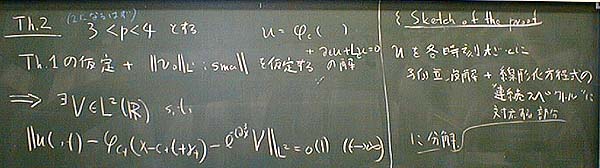 Th.2
3 < p < 4 とする
u = φc( )
Th.1の仮定 + ‖v₀‖L¹ : small を仮定する の解
⇒ ∃V ∈ L²(ℝ) s.t.
‖u(t,·) − φc₊(x − c₊t + γ₊) − V‖L² = o(1) (t→∞)
{ Sketch of the proof
u を各時刻ごとに
孤立波解 + 線形化方程式の
"連続スペクトル"に
対応する部分
に分解